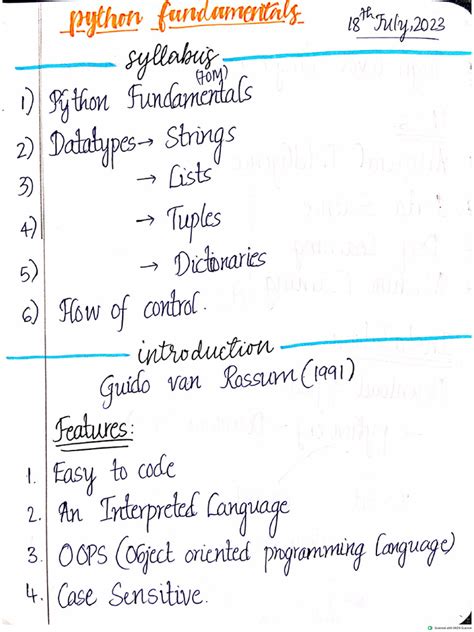 python fundamentals
18th July, 2023
syllabus
(FOM)
1) Python Fundamentals
2) Datatypes → Strings
3) → Lists
4) → Tuples
5) → Dictionaries
6) Flow of control.
introduction
Guido van Rossum (1991)
Features:
1. Easy to code
2. An Interpreted Language
3. OOPS (Object oriented programming Language)
4. Case Sensitive.